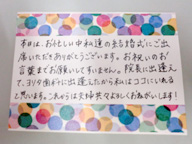 本日は、お忙しい中私達の結婚式にご出
席いただきありがとうございます。お祝いのお
言葉までお願いしてすいません。院長に出逢え
て、ヨリタ歯科に出逢えたから私はココにいれる
と思います。これからは夫婦共々よろしくおねがいします!